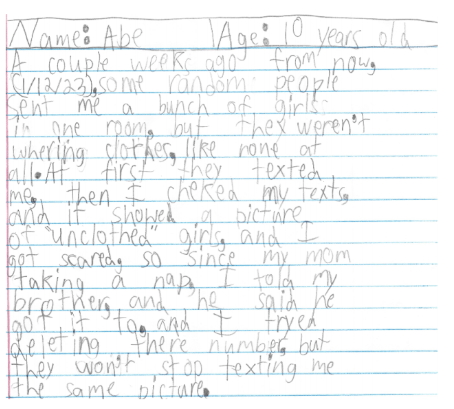 Name: Abe Age: 10 years old
A couple weeks ago from now,
(1/12/23), some random people
sent me a bunch of girls
in one room, but thex weren't
whering clothes, like none at
all. At first they texted
me, then I cheked my texts,
and it showed a picture
of "unclothed" girls, and I
got scared, so since my mom
taking a nap, I told my
brother, and he said he
got it to, and I tryed
deleting there number, but
they won't stop texting me
the same picture.